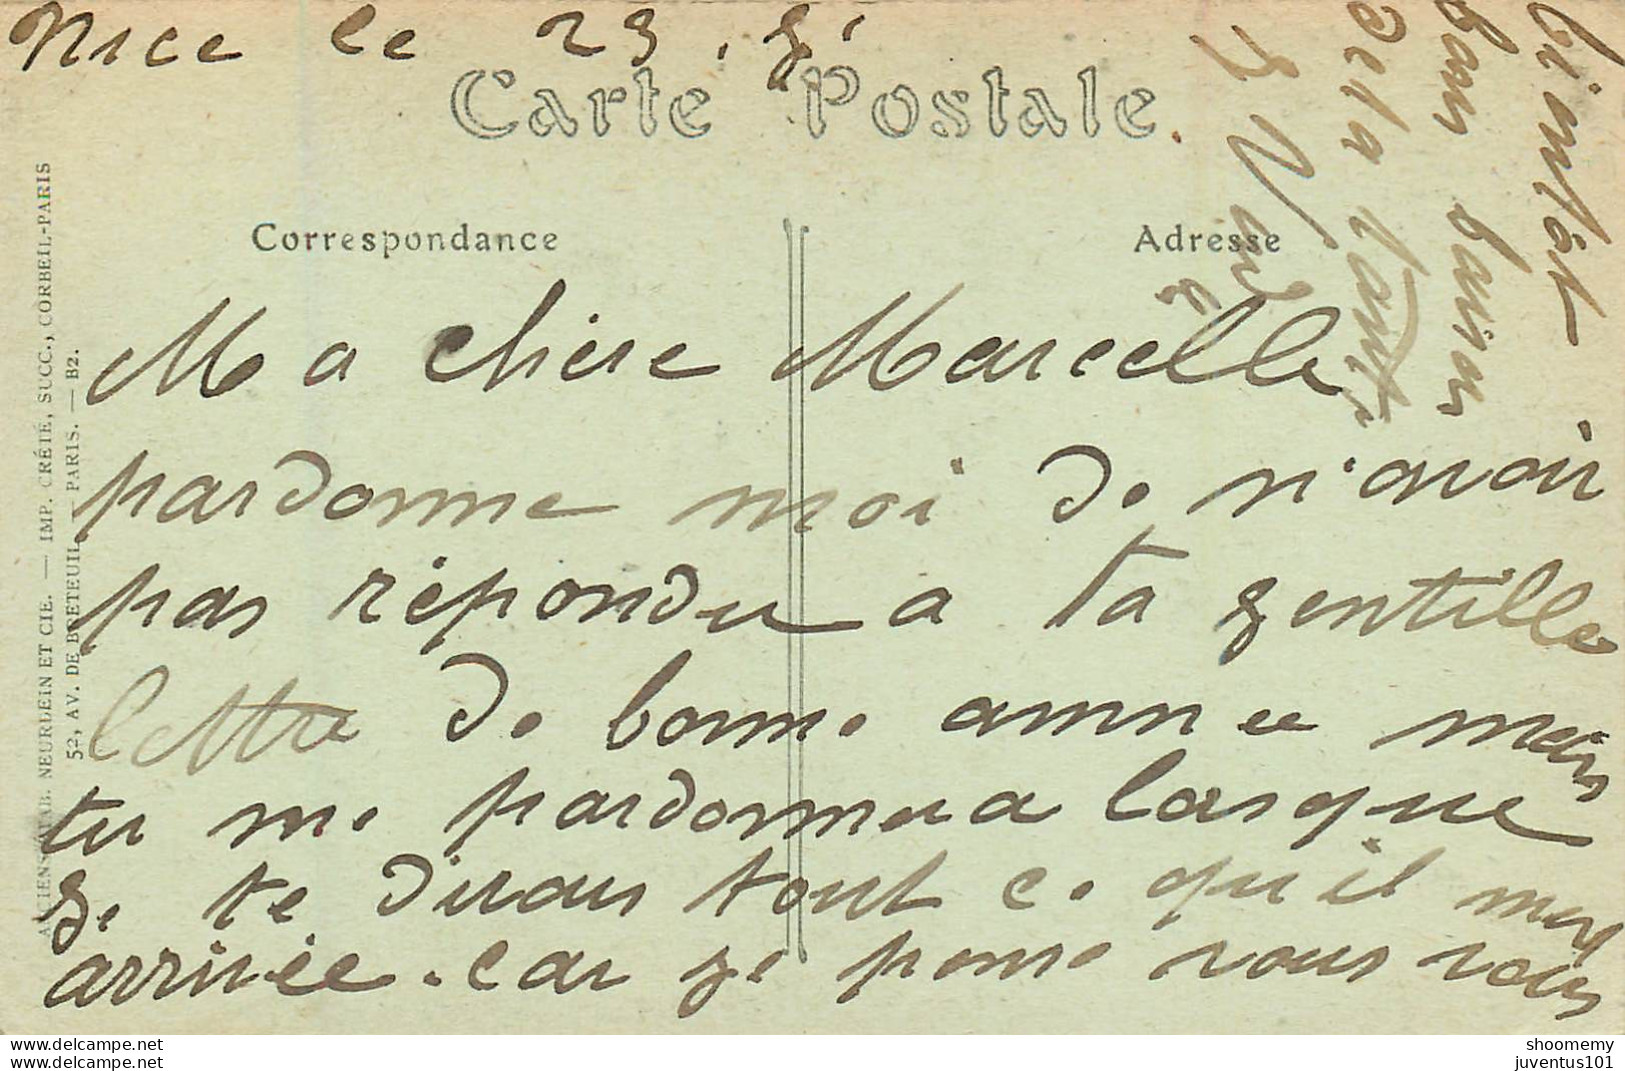 Nice le 23.
Carte Postale
Correspondance
Adresse
Ma chère Marcelle
pardonne moi de n'avoir
pas répondu a ta gentille
lettre de bonne annee mais
tu me pardonnera lorsque
je te dirais tout ce qu'il
arrivée. car je pense vous voir
bientôt
bons baisers
de la tante
ANCIENS ÉTAB. NEURDEIN ET CIE. — IMP. CRÉTÉ, SUCC., CORBEIL-PARIS
52, AV. DE BRETEUIL, PARIS. — B2.
shoomemy
juventus101